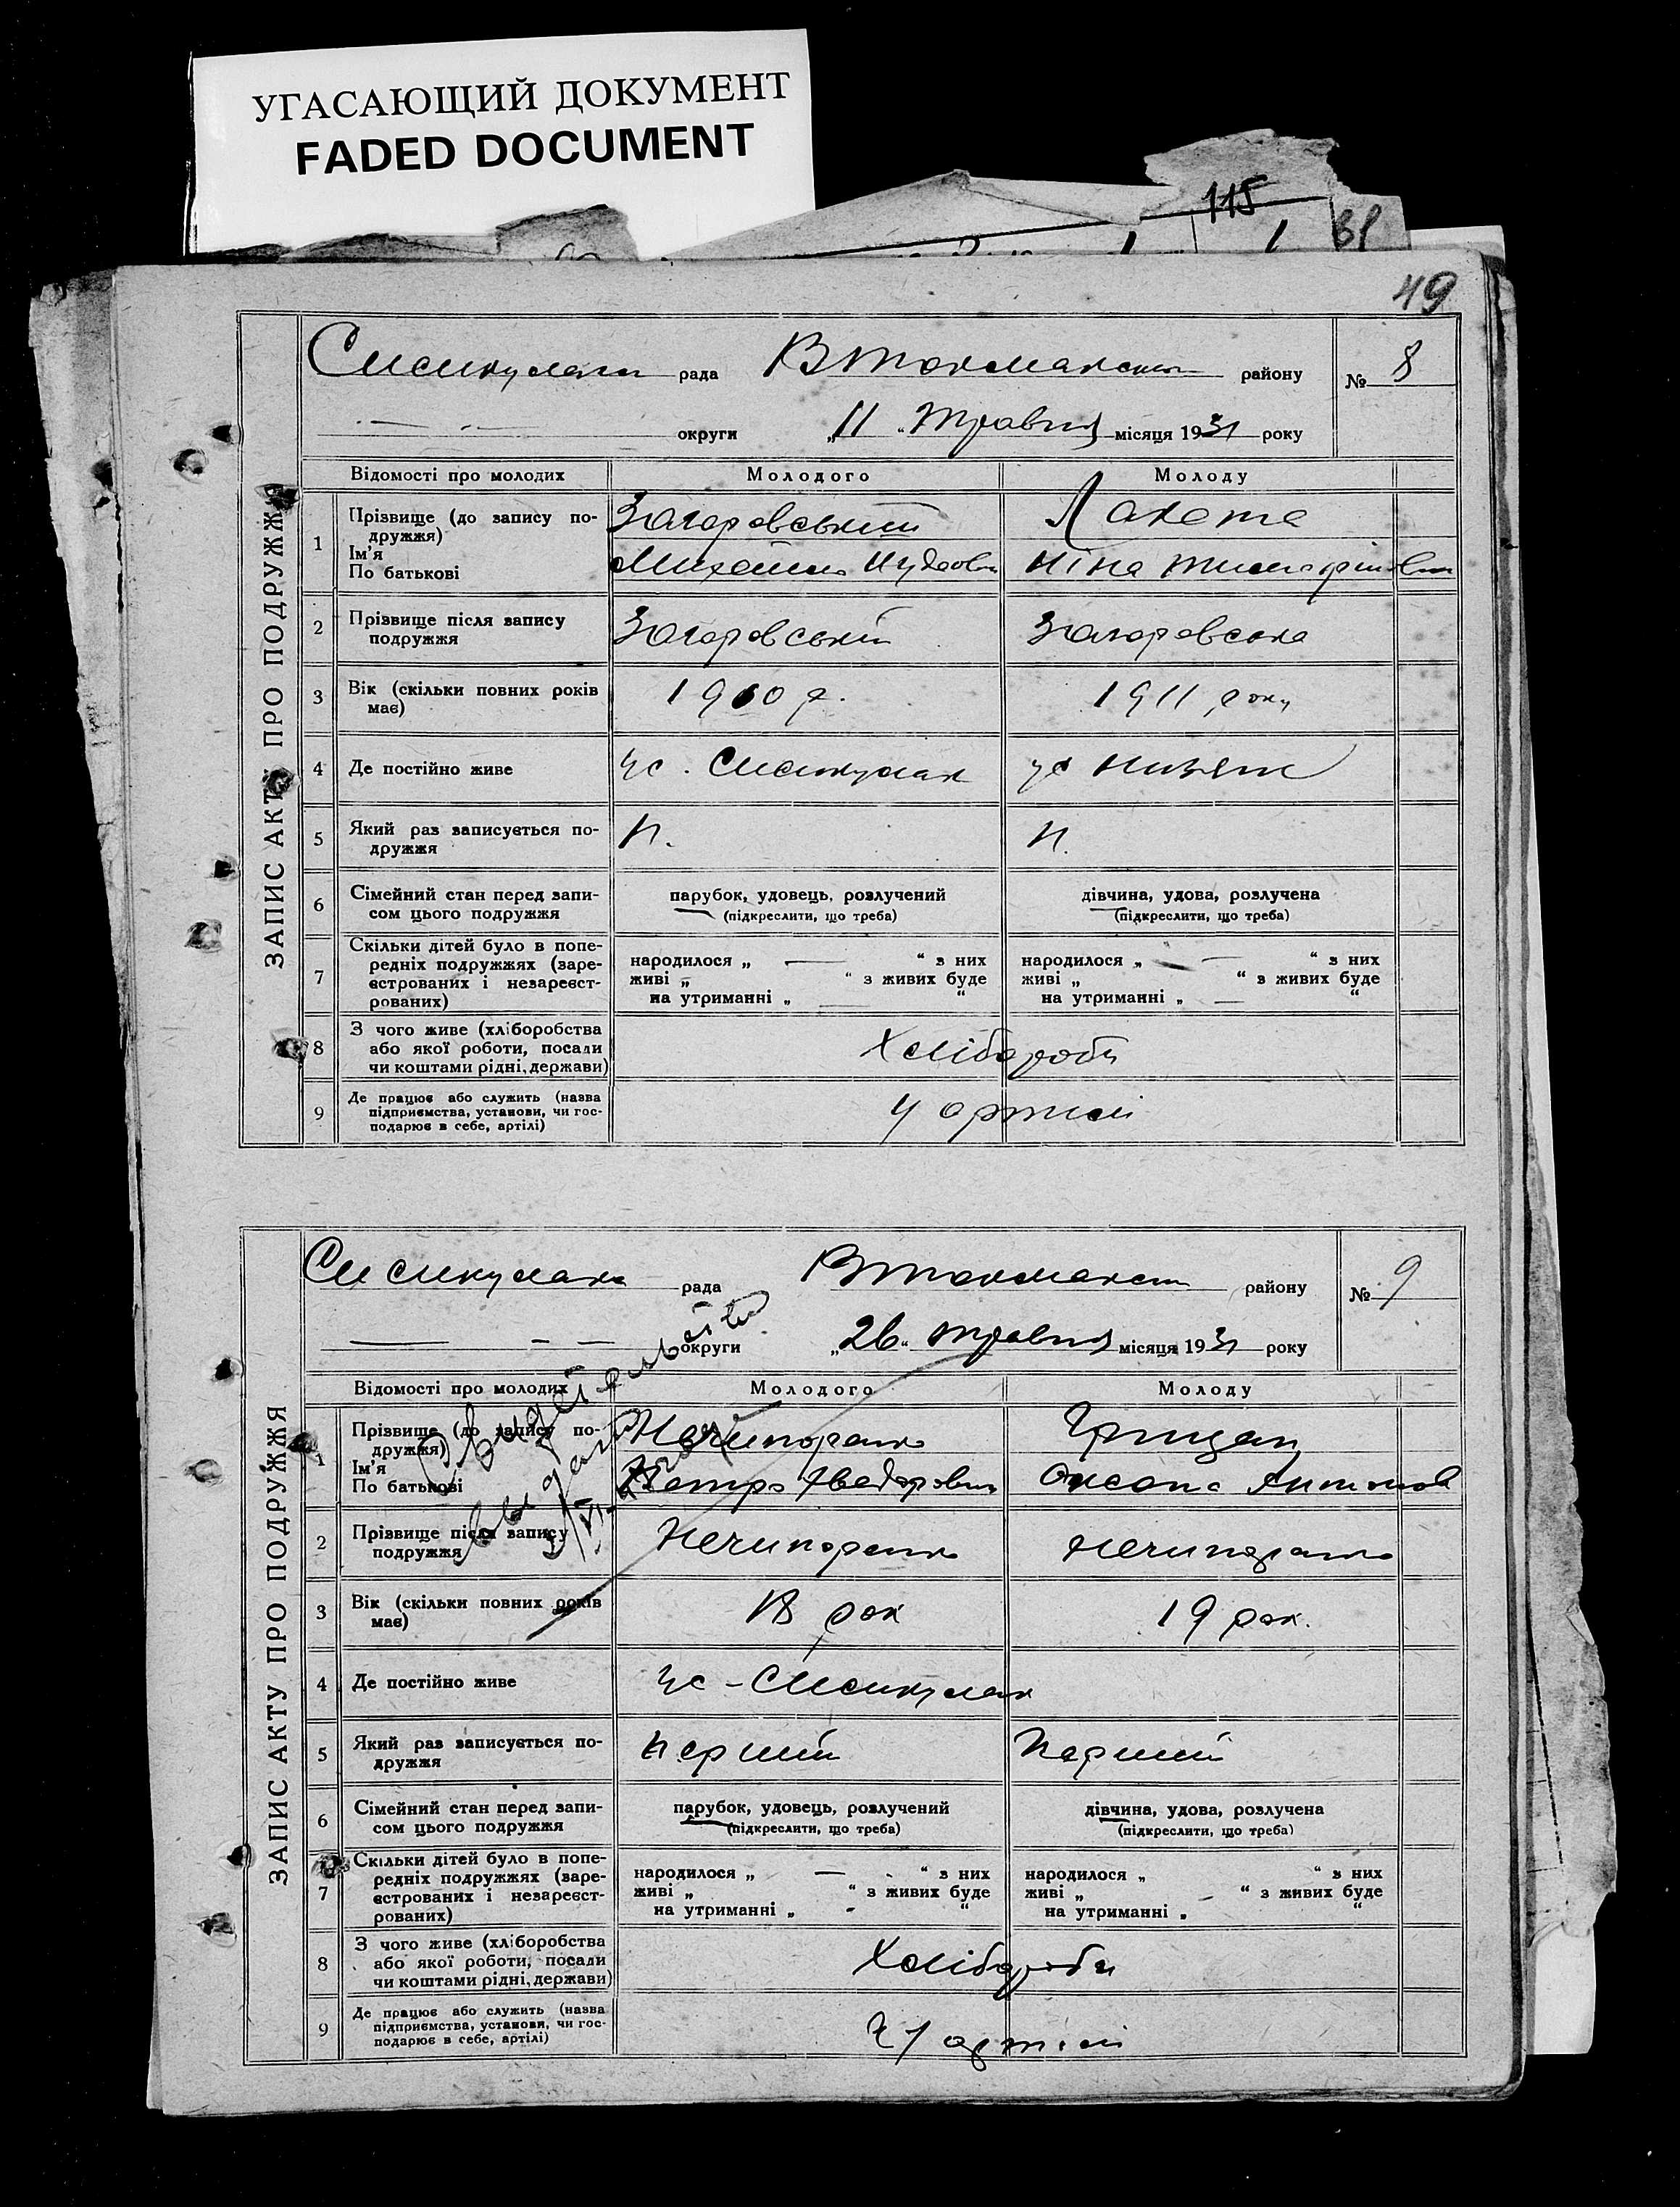 УГАСАЮЩИЙ ДОКУМЕНТ
FADED DOCUMENT
115
49
ЗАПИС АКТУ ПРО ПОДРУЖЖЯ
рада Втокмакськ району № 8
округи „11“ Травня місяця 1931 року
Відомості про молодих Молодого Молоду
1 Прізвище (до запису по-
дружжя)
Ім'я
По батькові
Загоровський
Михайло
Лакота
Ніна
2 Прізвище після запису
подружжя
Загоровський Загоровська
3 Вік (скільки повних років
має)
1910 р. 1911 року
4 Де постійно живе
ус.
5 Який раз записується по-
дружжя
п. п.
6 Сімейний стан перед запи-
сом цього подружжя
парубок, удовець, розлучений
(підкреслити, що треба)
дівчина, удова, розлучена
(підкреслити, що треба)
7 Скільки дітей було в попе-
редніх подружжях (заре-
єстрованих і незареєст-
рованих)
народилося „ — “ з них
живі „ “ з живих буде
на утриманні „ — “
народилося „ — “ з них
живі „ “ з живих буде
на утриманні „ — “
8 З чого живе (хліборобства
або якої роботи, посади
чи коштами рідні, держави)
Хлібороби
9 Де працює або служить (назва
підприємства, установи, чи гос-
подарює в себе, артілі)
У артілі
ЗАПИС АКТУ ПРО ПОДРУЖЖЯ
рада Втокмакськ району № 9
округи „26“ травня місяця 1931 року
Відомості про молодих Молодого Молоду
1 Прізвище (до запису по-
дружжя)
Ім'я
По батькові
Нечипоренко
Петро Хведорович
Грицан
Оксана Антонов
2 Прізвище після запису
подружжя
Нечипоренко Нечипоренко
3 Вік (скільки повних років
має)
18 рок 19 рок.
4 Де постійно живе
ус -
5 Який раз записується по-
дружжя
перший Перший
6 Сімейний стан перед запи-
сом цього подружжя
парубок, удовець, розлучений
(підкреслити, що треба)
дівчина, удова, розлучена
(підкреслити, що треба)
7 Скільки дітей було в попе-
редніх подружжях (заре-
єстрованих і незареєст-
рованих)
народилося „ — “ з них
живі „ “ з живих буде
на утриманні „ - “
народилося „ “ з них
живі „ - “ з живих буде
на утриманні „ “
8 З чого живе (хліборобства
або якої роботи, посади
чи коштами рідні, держави)
Хлібороби
9 Де працює або служить (назва
підприємства, установи, чи гос-
подарює в себе, артілі)
У артілі